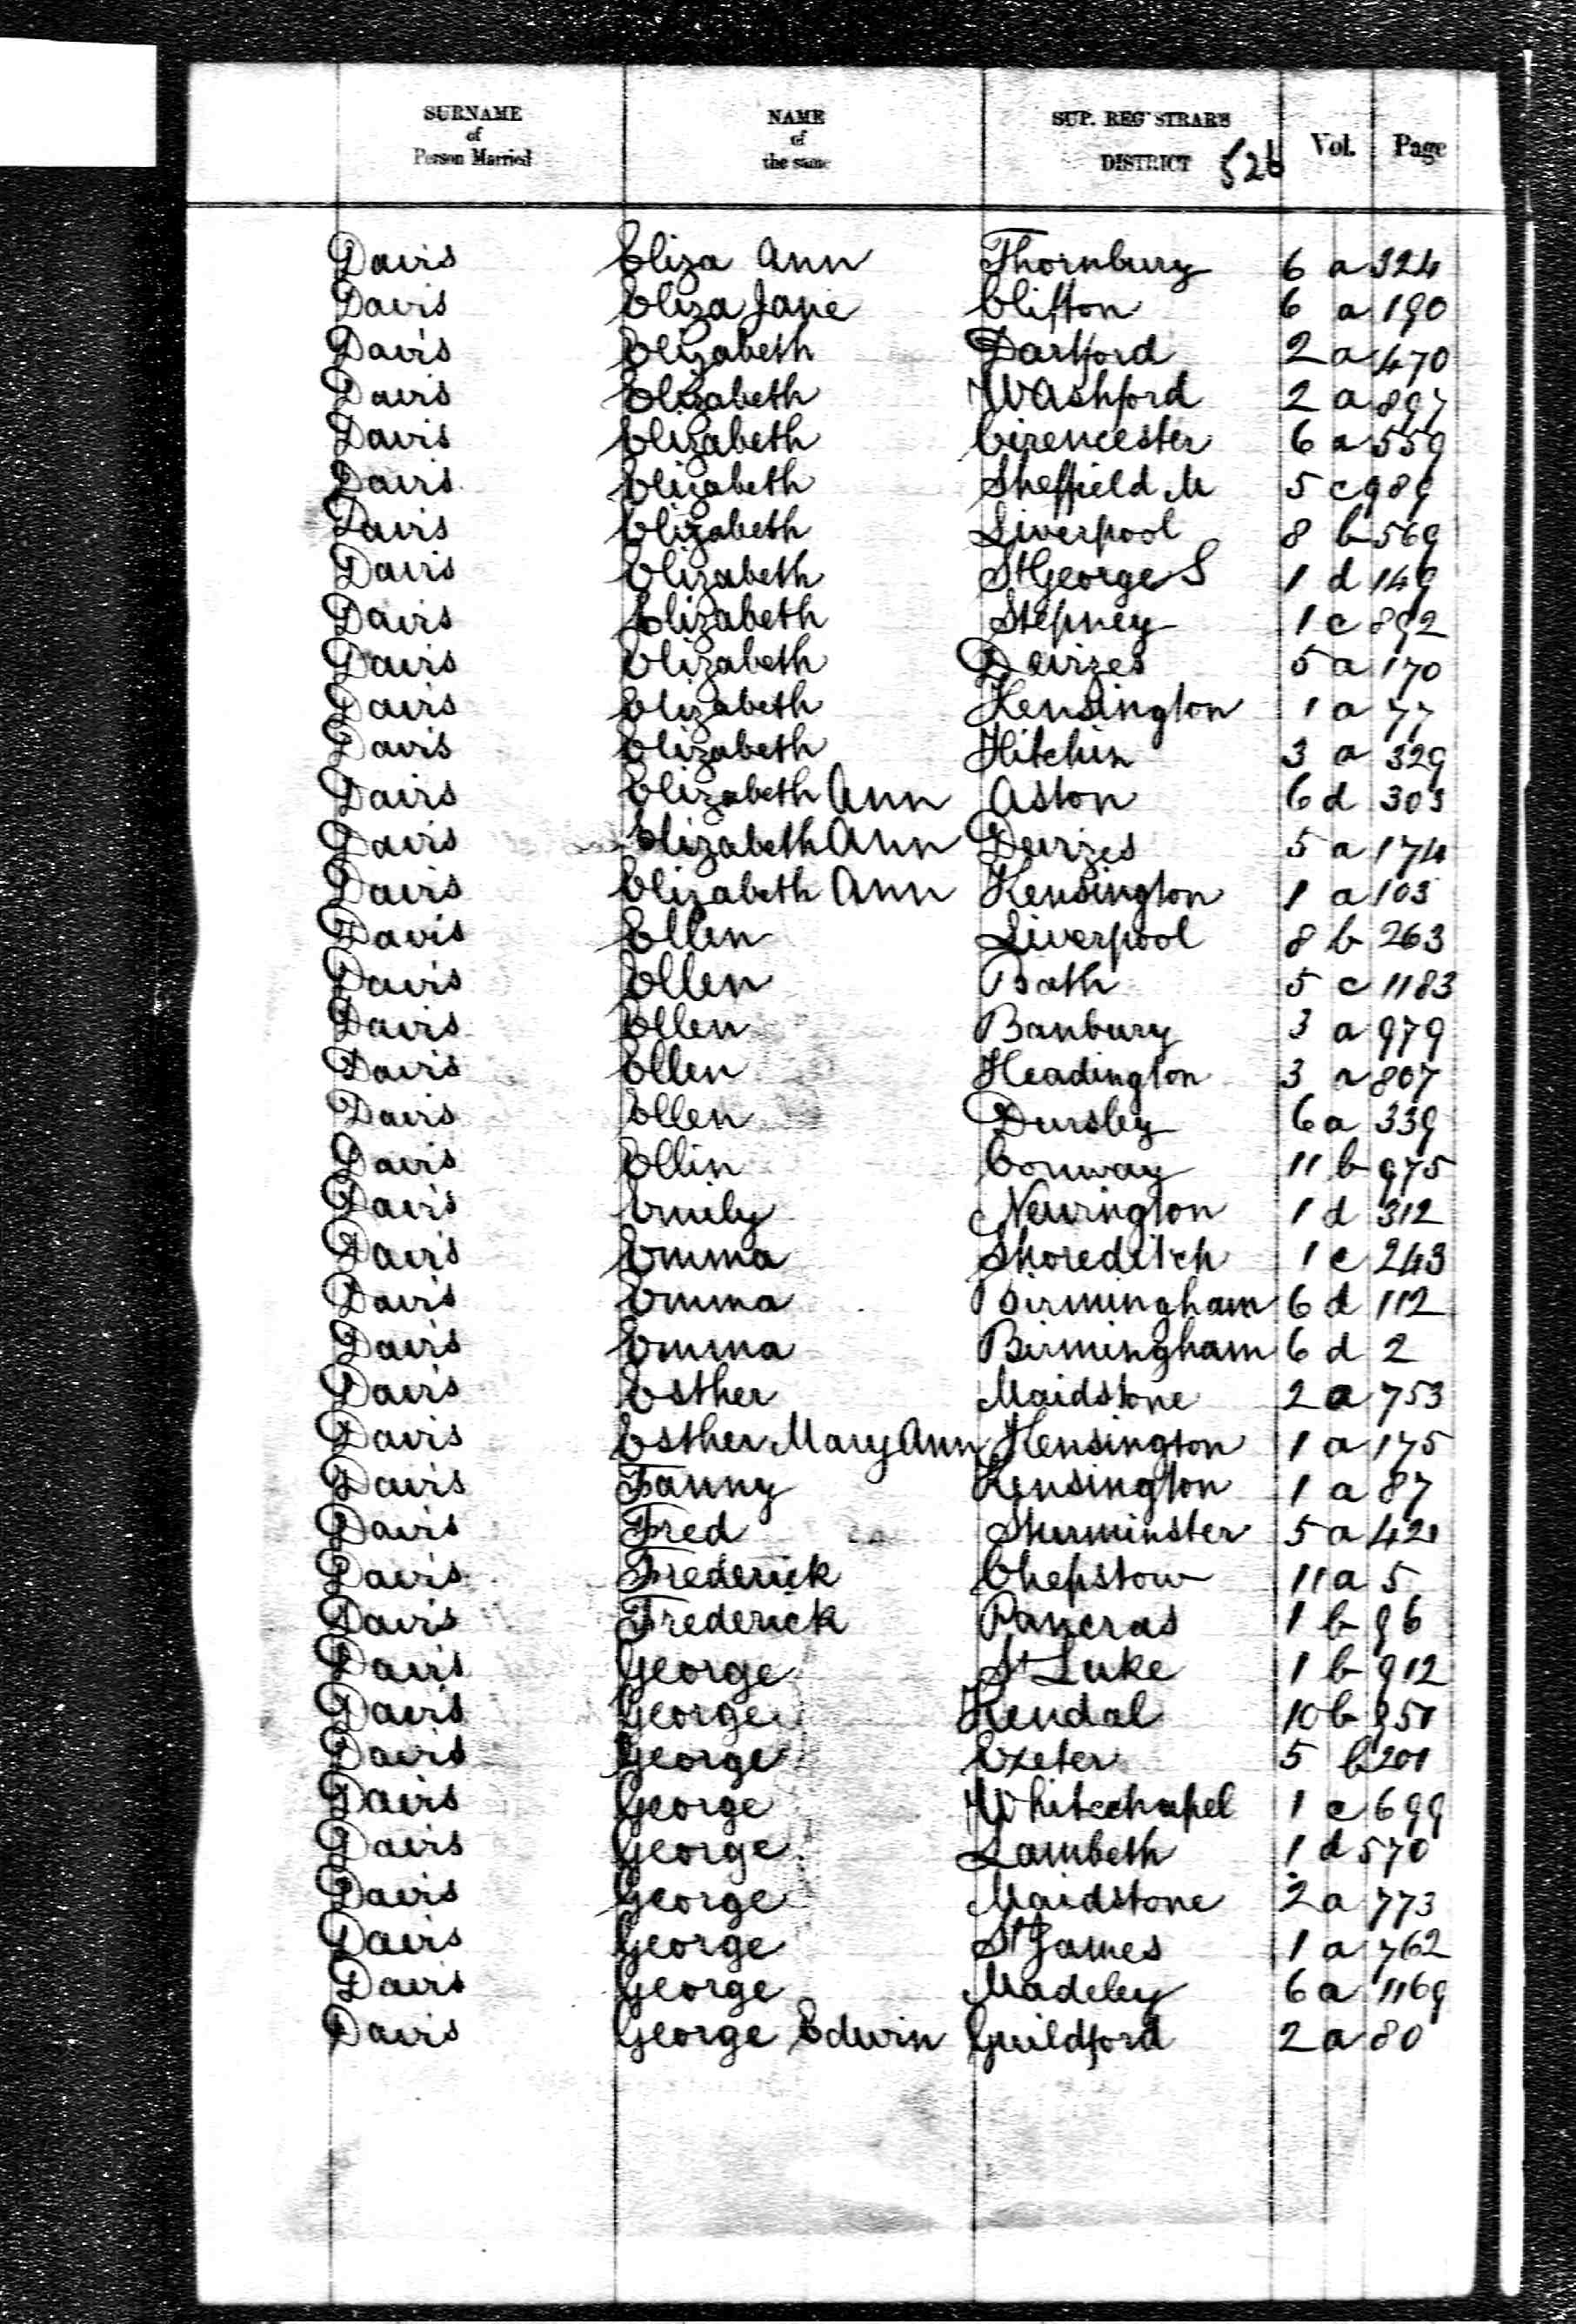 SURNAME of Person Married NAME of the same SUP. REGISTRARS DISTRICT 526 Vol. Page
Davis Eliza Ann Thornbury 6 a 324
Davis Eliza Jane Clifton 6 a 190
Davis Elizabeth Dartford 2 a 470
Davis Elizabeth W Ashford 2 a 897
Davis Elizabeth Cirencester 6 a 559
Davis Elizabeth Sheffield M 5 c 989
Davis Elizabeth Liverpool 8 b 569
Davis Elizabeth St George S 1 d 149
Davis Elizabeth Stepney 1 c 892
Davis Elizabeth Devizes 5 a 170
Davis Elizabeth Kensington 1 a 77
Davis Elizabeth Hitchin 3 a 329
Davis Elizabeth Ann Aston 6 d 303
Davis Elizabeth Ann Devizes 5 a 174
Davis Elizabeth Ann Kensington 1 a 103
Davis Ellen Liverpool 8 b 263
Davis Ellen Bath 5 c 1183
Davis Ellen Banbury 3 a 979
Davis Ellen Headington 3 a 807
Davis Ellen Dursley 6 a 339
Davis Ellin Conway 11 b 975
Davis Emily Newington 1 d 312
Davis Emma Shoreditch 1 c 243
Davis Emma Birmingham 6 d 112
Davis Emma Birmingham 6 d 2
Davis Esther Maidstone 2 a 753
Davis Esther Mary Ann Kensington 1 a 175
Davis Fanny Kensington 1 a 87
Davis Fred Sturminster 5 a 421
Davis Frederick Chepstow 11 a 5
Davis Frederick Pancras 1 b 96
Davis George St Luke 1 b 912
Davis George Kendal 10 b 951
Davis George Exeter 5 b 201
Davis George Whitechapel 1 c 699
Davis George Lambeth 1 d 570
Davis George Maidstone 2 a 773
Davis George St James 1 a 762
Davis George Madeley 6 a 1169
Davis George Edwin Guildford 2 a 80